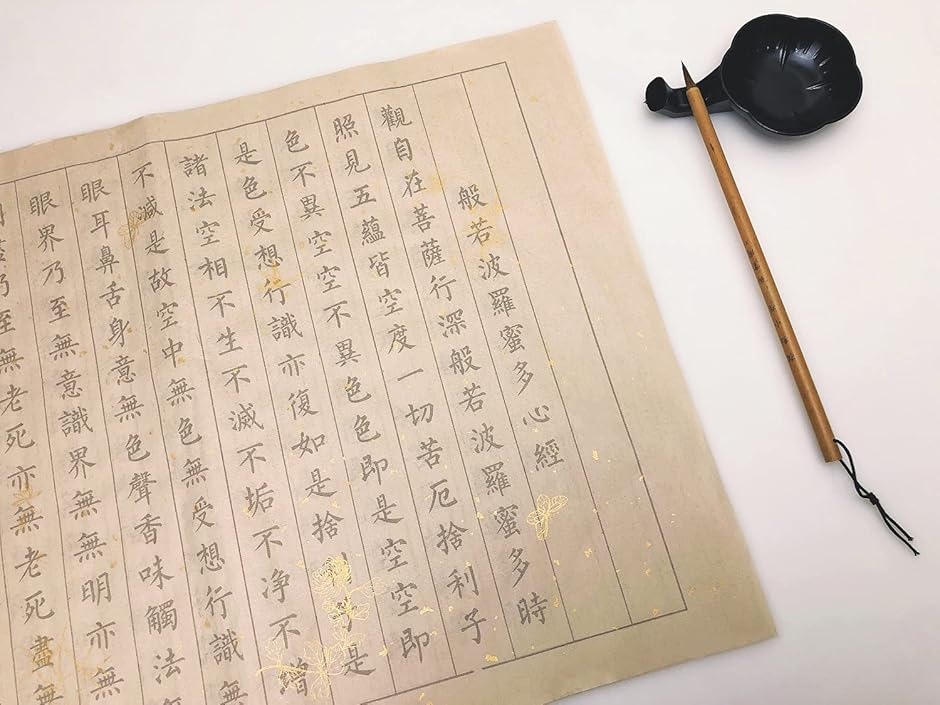 般若波羅蜜多心經
觀自在菩薩行深般若波羅蜜多時
照見五蘊皆空度一切苦厄捨利子
色不異空空不異色色即是空空即
是色受想行識亦復如是捨利子是
諸法空相不生不滅不垢不净不增
不減是故空中無色無受想行識無
眼耳鼻舌身意無色聲香味觸法無
眼界乃至無意識界無無明亦無
乃至無老死亦無老死盡無